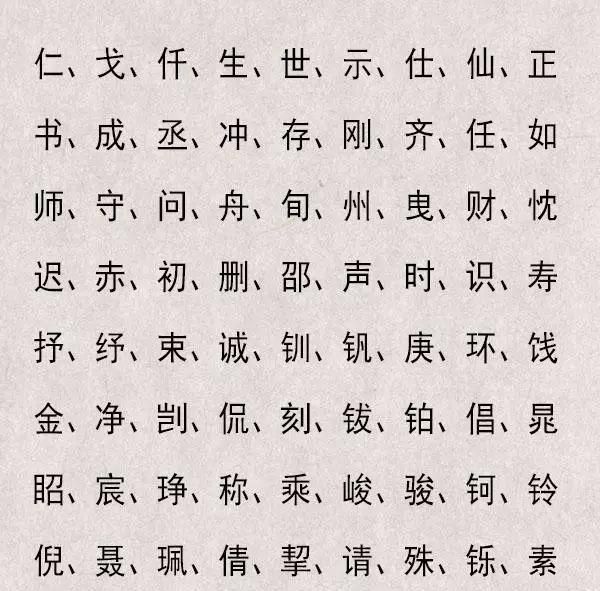 仁、戈、仟、生、世、示、仕、仙、正
书、成、丞、冲、存、刚、齐、任、如
师、守、问、舟、旬、州、曳、财、忱
迟、赤、初、删、邵、声、时、识、寿
抒、纾、束、诚、钏、钒、庚、环、饯
金、净、剀、侃、刻、钹、铂、倡、晁
眧、宸、琤、称、乘、峻、骏、钶、铃
倪、聂、珮、倩、挈、请、殊、铄、素